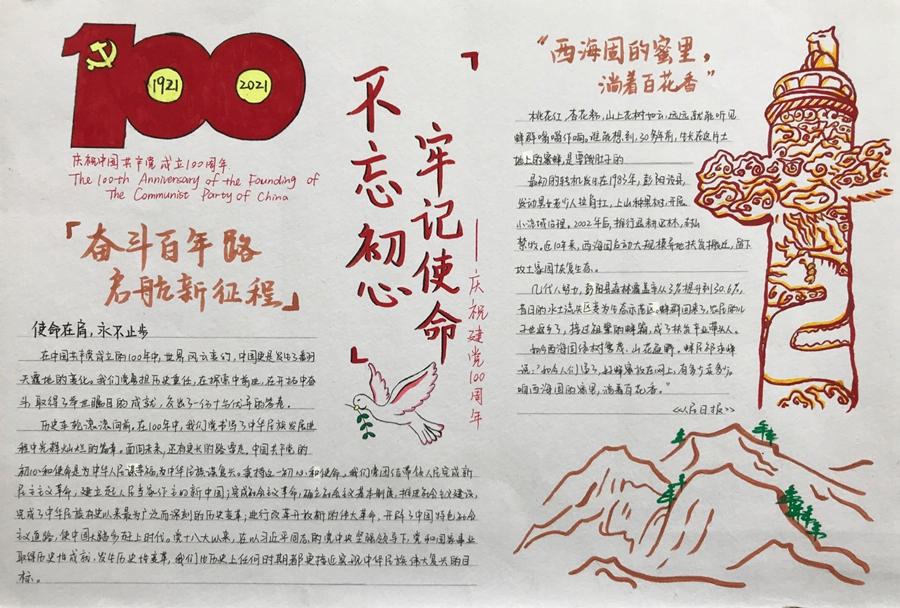 100
1921
2021
庆祝中国共产党成立100周年
The 100th Anniversary of the Founding of
The Communist Party of China
「奋斗百年路
启航新征程」
使命在肩，永不止步
在中国共产党成立的100年中，世界风云变幻，中国更是发生了翻
天覆地的变化。我们党肩担历史重任，在探索中前进，在开拓中奋
斗，取得了举世瞩目的成就，交出了一份十分优异的答卷。
历史车轮滚滚向前，在100年中，我们党书写了中华民族发展进
程中光辉灿烂的篇章。面向未来，还有更长的路要走，中国共产党的
初心和使命是为中华人民谋幸福，为中华民族谋复兴。秉持这一初心和使命，我们党团结带领人民完成新
民主主义革命，建立起人民当家作主的新中国；完成社会主义革命，确立社会主义基本制度，推进社会主义建设，
完成了中华民族有史以来最为广泛而深刻的历史变革；进行改革开放新的伟大革命，开辟了中国特色社会
主义道路，使中国大踏步赶上时代。党十八大以来，在以习近平同志的党中央坚强领导下，党和国家事业
取得历史性成就、发生历史性变革，我们比历史上任何时期都更接近实现中华民族伟大复兴的目
标。
「不忘初心
牢记使命」
——庆祝建党100周年
“西海固的蜜里，
淌着百花香”
桃花红，杏花粉，山上花树如云，远远就能听见
蜂群嗡嗡作响。谁能想到，30多年前，生长在这片土
地上的蜜蜂，是要饿肚子的
最初的转机发生在1983年，彭阳设县，
发动男女老少人拉肩扛，上山种果树，开展
小流域治理。2002年后，推行退耕还林，封山
禁牧。近10年来，西海固启动大规模异地扶贫搬迁，留下
故土家园恢复生态。
几代人努力，彭阳县森林覆盖率从3%提升到30.6%，
昔日的水土流失区变为生态示范区。蜂群回来了，农民的儿
子也返乡了，接过祖辈的蜂箱，成了扶贫产业带头人。
如今西海固绿树繁茂，山花遍野。蜂民祁
说：“如今人们
咱西海固的蜜里，淌着百花香。”
《人民日报》